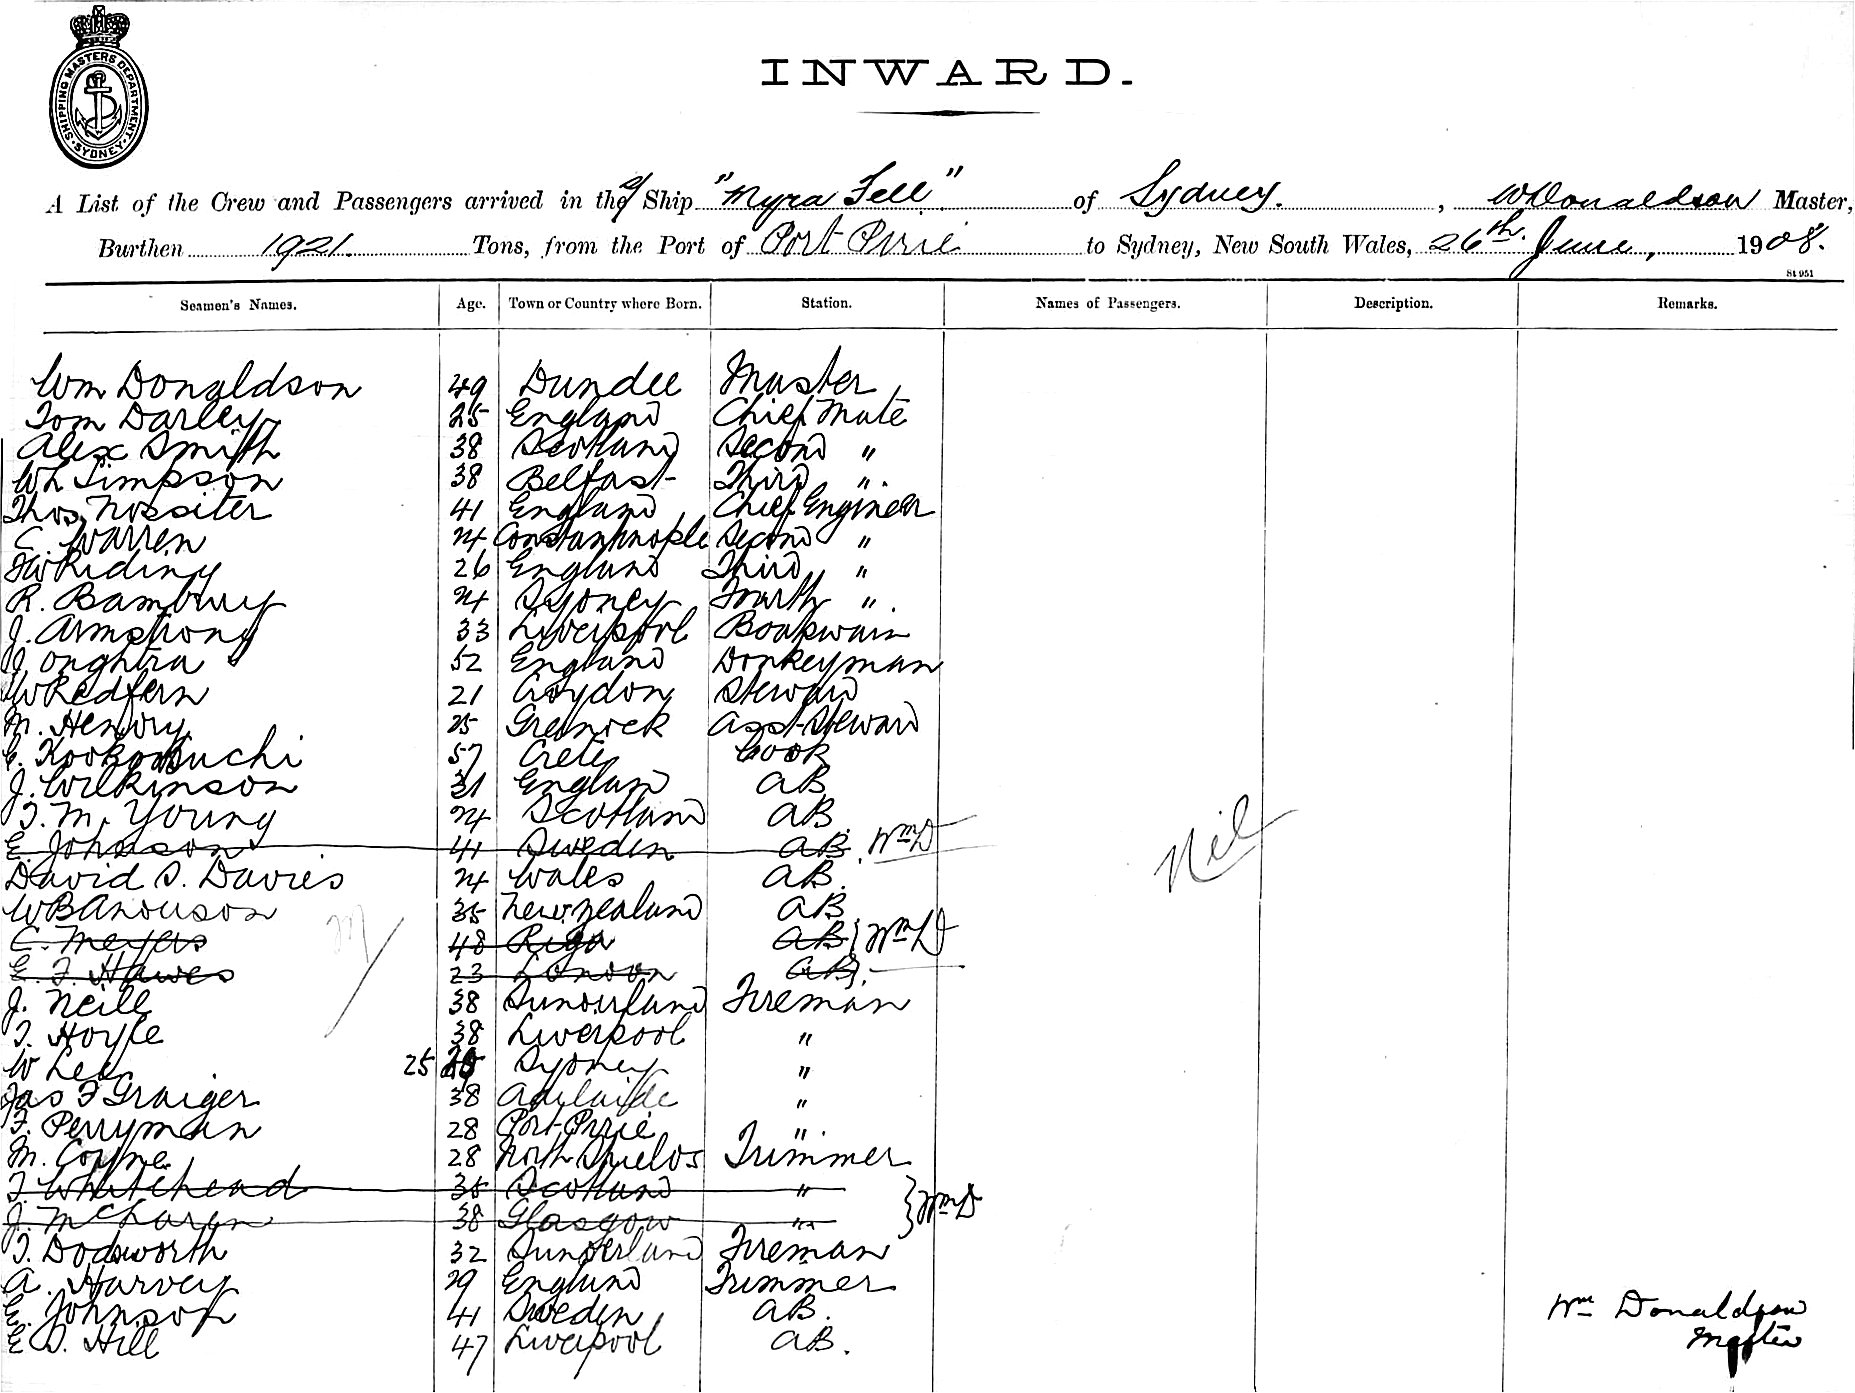 SHIPPING MASTERS DEPARTMENT
SYDNEY
INWARD.
A List of the Crew and Passengers arrived in the s/ Ship "Myra Fell" of Sydney. , W Donaldson Master,
Burthen 1921. Tons, from the Port of Port Pirie to Sydney, New South Wales, 26th June, 1908.
St 951
Seamen's Names. Age. Town or Country where Born. Station. Names of Passengers. Description. Remarks.
Wm Donaldson 49 Dundee Master
Tom Darley 25 England Chief Mate
Alex Smith 38 Scotland Second "
Wh Simpson 38 Belfast Third "
Thos Nossiter 41 England Chief Engineer
C. Warren 24 Constantinople Second "
Riding 26 England Third "
R. Bambury 24 Sydney Fourth "
J. Armstrong 33 Liverpool Boatswain
J. Oughtra 52 England Donkeyman
W Redfern 21 Croydon Steward
M. Hendry 25 Greenock Asst Steward
57 Crete Cook
J. Wilkinson 31 England AB
T. M. Young 24 Scotland AB
E. Johnson 41 Sweden AB. WmD
David S. Davies 24 Wales AB.
W B Anderson 35 New Zealand AB
C. Meyers 48 Riga AB } WmD
E. F. Hawes 23 London AB }
J. Neill 38 Sunderland Fireman
T. Hoyle 38 Liverpool "
W Lee 25 Sydney "
Jas F Graiger 38 Adelaide "
F. Perryman 28 Port Pirie "
M. Coyne 28 North Shields Trimmer
T. Whitehead 35 Scotland "
J. McLaren 38 Glasgow " } WmD
T. Dodsworth 32 Sunderland Fireman
A. Harvey 29 England Trimmer
E. Johnson 41 Sweden AB.
E S. Hill 47 Liverpool AB.
Nil
Wm Donaldson
Master